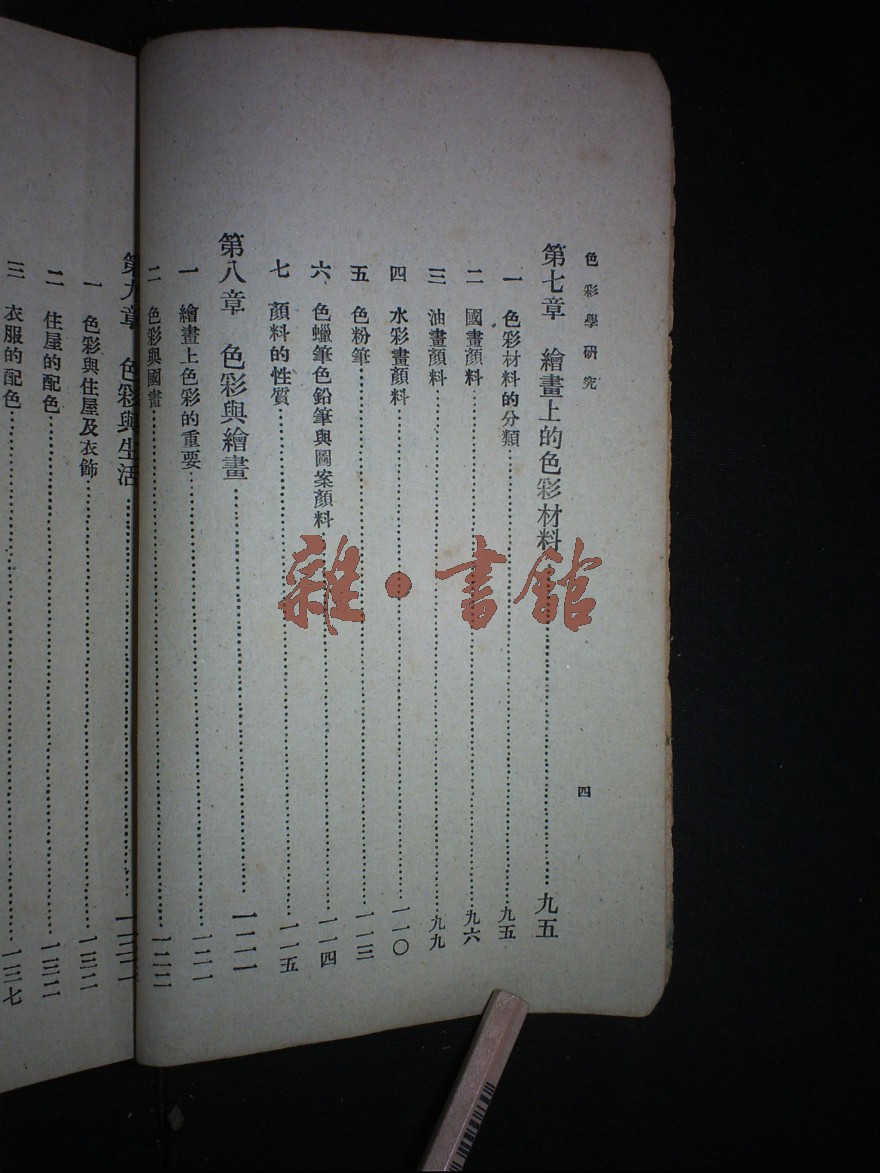 色彩學研究
四
第七章 繪畫上的色彩材料……九五
一 色彩材料的分類……九五
二 國畫顏料……九六
三 油畫顏料……九九
四 水彩畫顏料……一一〇
五 色粉筆……一一三
六 色蠟筆色鉛筆與圖案顏料……一一四
七 顏料的性質……一一五
第八章 色彩與繪畫……一二一
一 繪畫上色彩的重要……一二一
二 色彩與國畫……一二二
第九章 色彩與生活……一三二
一 色彩與住屋及衣飾……一三二
二 住屋的配色……一三二
三 衣服的配色……一三七
雜·書館